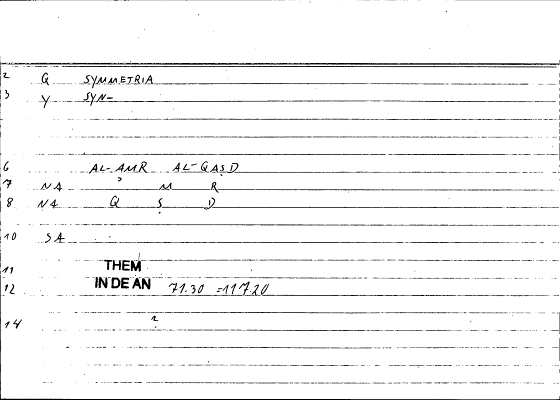 2 Q SYMMETRIA
3 Y SYN-
6 AL-AMR AL-QAṢD
7 NA ʾ M R
8 NA Q Ṣ D
10 SA
11 THEM
12 IN DE AN 71.30 =117.20
14